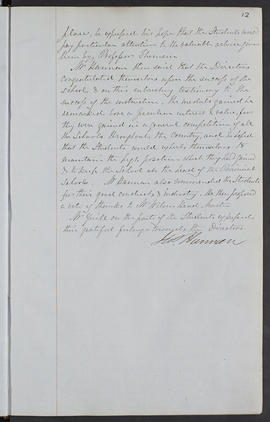 12
place, he expressed his hope that the Students would
pay particular attention to the valuable advice given
them by Professor Thomson.
Mr Hannan then said that the Directors
congratulated themselves upon the success of the
School & on this interesting testimony to the
success of the instruction. The medals gained in
remarked bore a peculiar interest & value for
they were gained in a general competition of all
the Schools throughout the Country, and he hoped
that the Students would exert themselves to
maintain the high position which they had gained
& to keep the School at the head of the Provincial
Schools. Mr Hannan also commended the Students
for their good conduct & industry. He then proposed
a vote of thanks to Mr Wilson Head Master
Mr Guild on the part of the Students expressed
their grateful feelings towards the Directors
Hannan